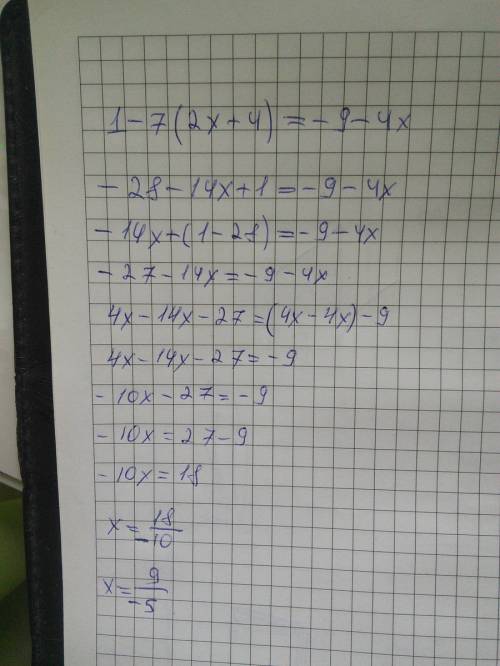 1-7(2x+4)=-9-4x
-28-14x+1=-9-4x
-14x+(1-28)=-9-4x
-27-14x=-9-4x
4x-14x-27=(4x-4x)-9
4x-14x-27=-9
-10x-27=-9
-10x=27-9
-10x=18
x=18/-10
x=9/-5